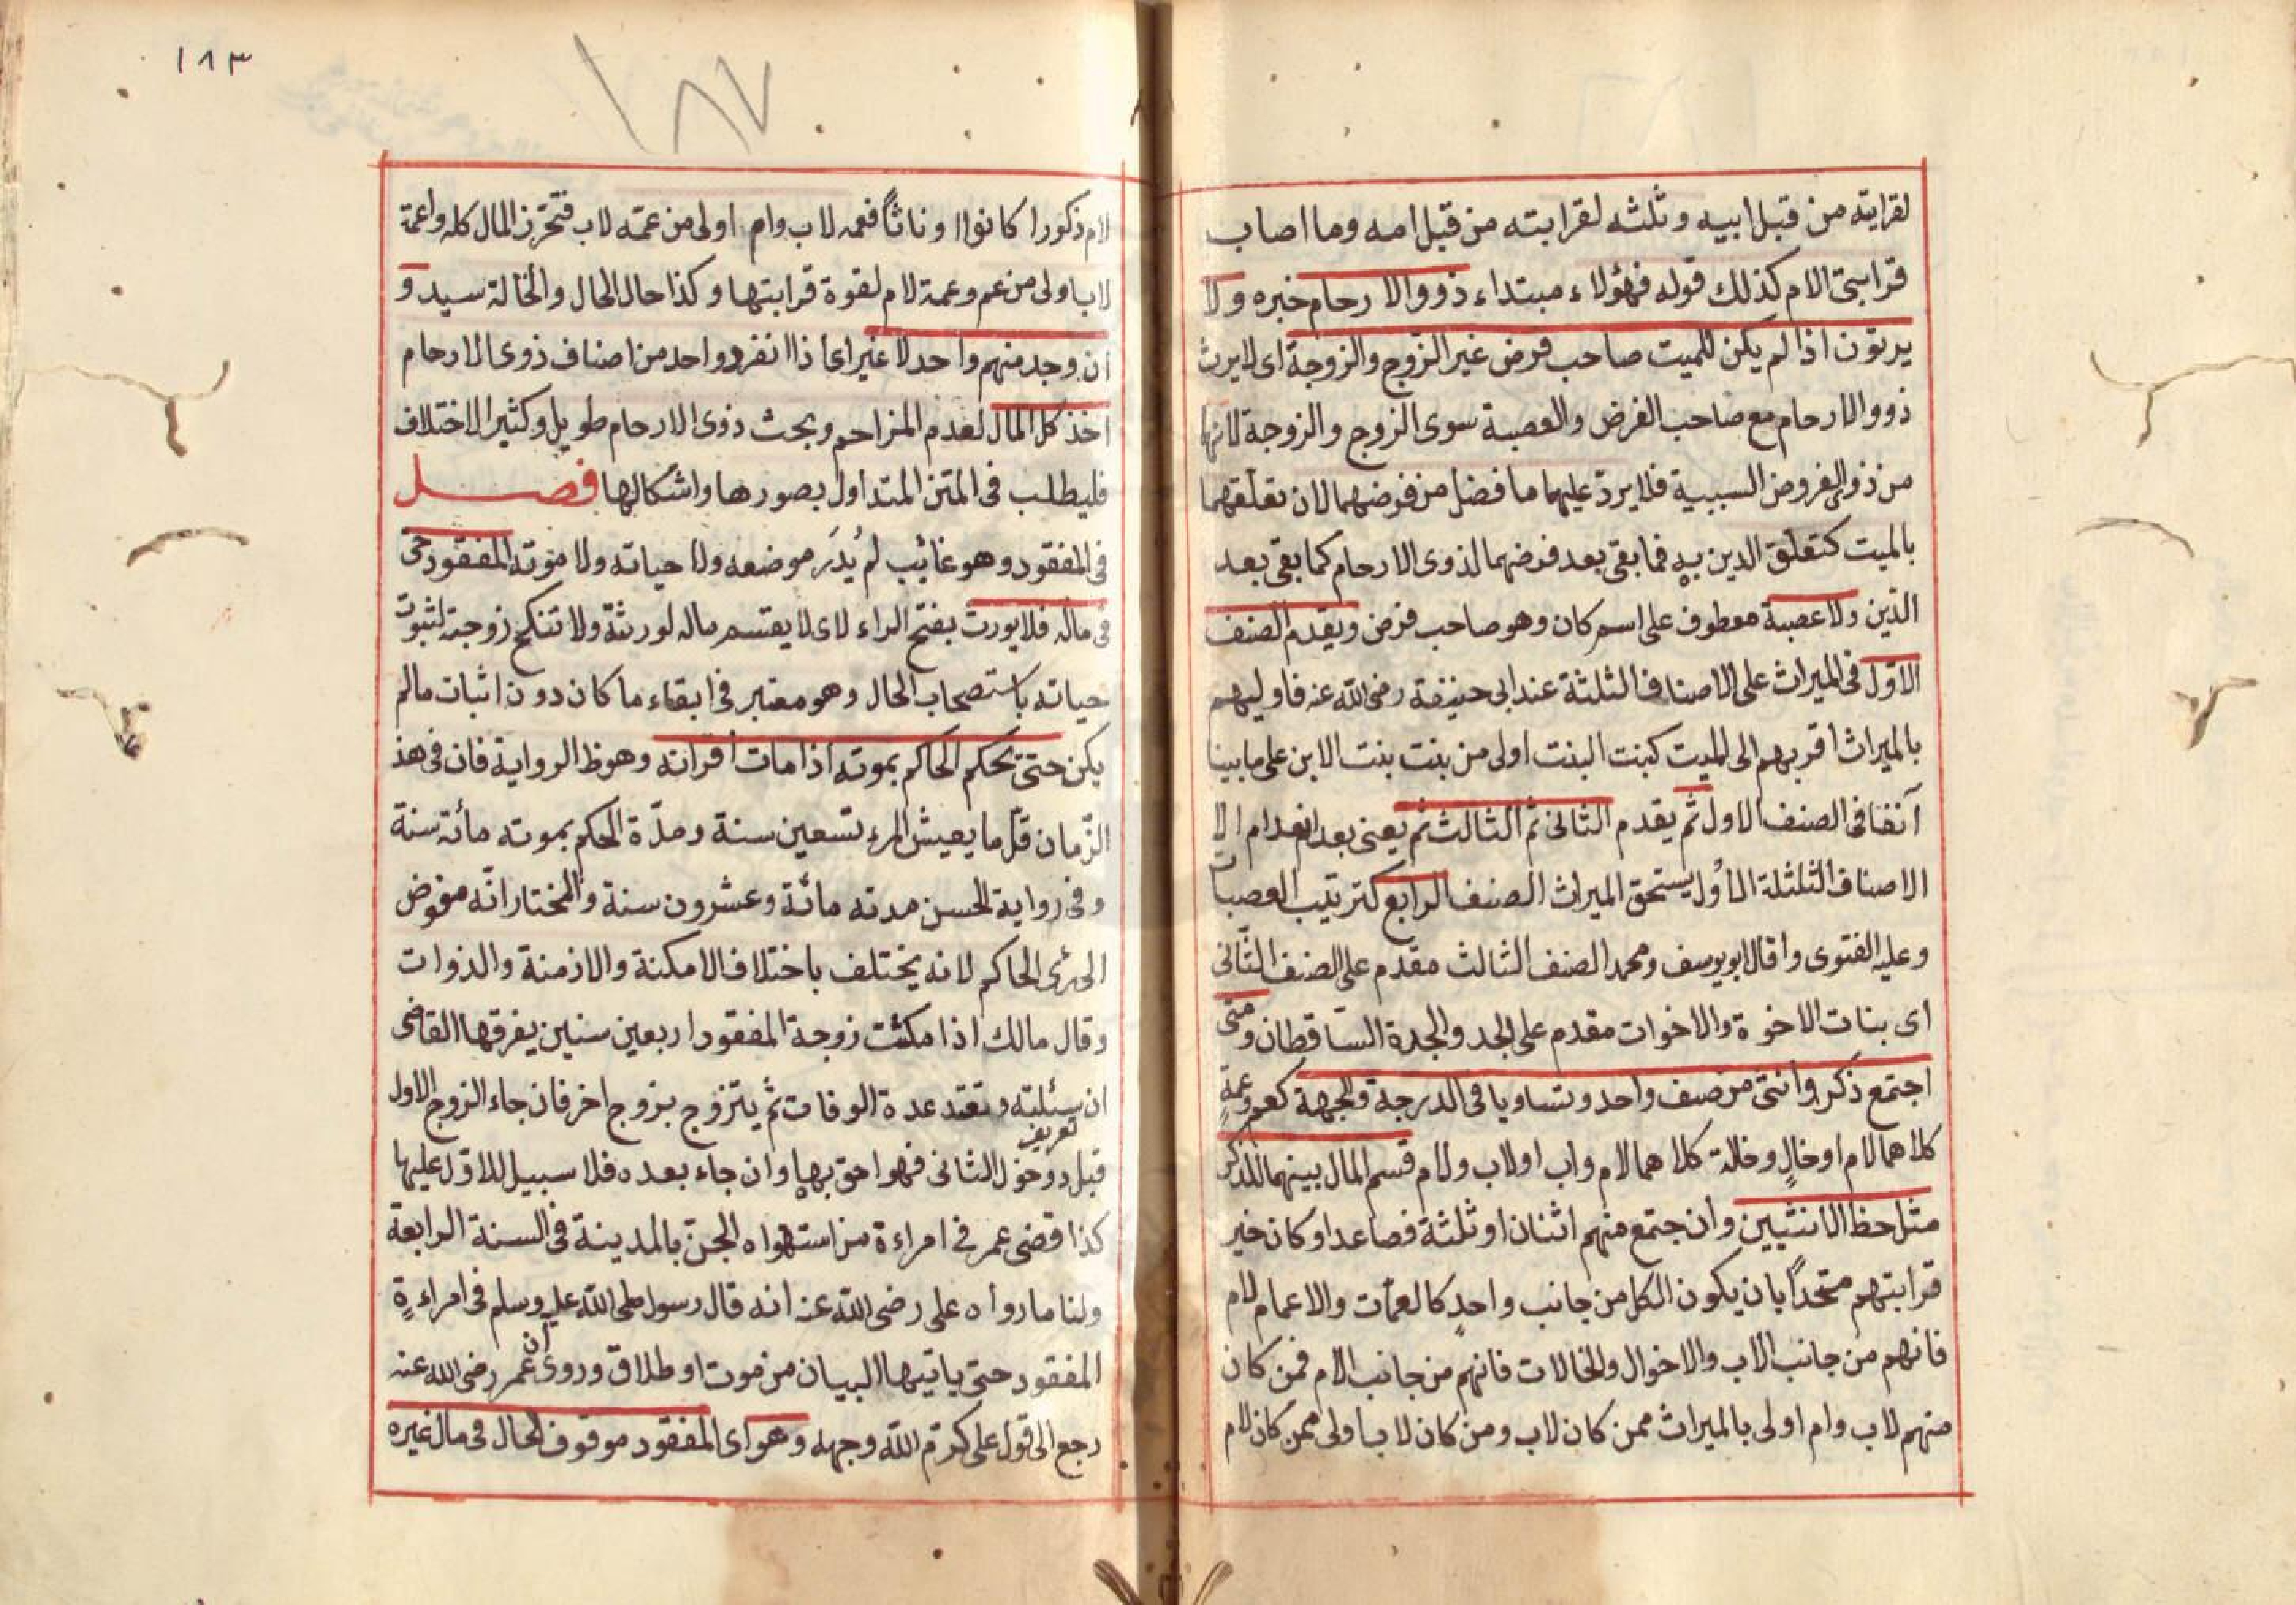 لقرابته من قبل ابيه وثلثه لقرابته من قبل امه وما اصاب
قرابتى الام كذلك قوله فهؤلاء مبتداء ذووالارحام خبره ولا
يرثون اذا لم يكن للميت صاحب فرض غير الزوج والزوجة اى لا يرث
ذووالارحام مع صاحب الفرض والعصبة سوى الزوج والزوجة لانها
من ذوى الفروض السببية فلا يردّ عليهما ما فضل من فرضهما لان تعلقهما
بالميت كتعلق الدين به فما بقى بعد فرضهما لذوى الارحام كما بقى بعد
الدّين ولا عصبة معطوف على اسم كان وهو صاحب فرض ويقدم الصنف
الاوّل فى الميراث على الاصناف الثلثة عند ابى حنيفة رضى الله عنه فاوليهم
بالميراث اقربهم الى الميت كبنت البنت اولى من بنت بنت الابن على ما بينا
آنفا فى الصنف الاول ثم يقدم الثانى ثم الثالث ثم يعنى بعد انعدام الا
الاصناف الثلثلة الاُول يستحق الميراث الصنف الرابع كترتيب العصبات
وعليه الفتوى واقال ابو يوسف ومحمد الصنف الثالث مقدّم على الصنف الثّانى
اى بنات الاخوة والاخوات مقدم على الجد والجدة السّاقطان ومتى
اجتمع ذكر وانثى من صنف واحد وتساويا فى الدرجة والجهة كعم وعمةٍ
كلاهما لام او خالٍ وخالة كلاهما لام واب او لاب ولام قسم المال بينهما للذكر
مثل حظ الانثيين وان جتمع منهم اثنان او ثلثة فصاعدا وكان خير
قرابتهم متحداً بان يكون الكل من جانب واحدٍ كالعمات والاعمام لام
فانهم من جانب الاب والاخوال والخالات فانهم من جانب الام فمن كان
منهم لاب وام اولى بالميراث ممن كان لاب ومن كان لاب اولى ممن كان لام
١٨٣
١٨٧
لام ذكورا كانوا اوناثاً فعمه لاب وام اولى من عمّه لاب فتحرز المال كله واعمة
لاب اولى من عم وعمة لام لقوة قرابتها وكذا حال الخال والخالة سيد و
ان وجد منهم واحد لا غير اى اذا انفرد واحد من اصناف ذوى الارحام
اخذ كل المال لعدم المزاحم وبحث ذوى الارحام طويل وكثير الاختلاف
فليطلب فى المتن المتداول بصورها واشكالها فصل
فى المفقود وهو غائب لم يُدرَ موضعه ولا حياته ولا موته المفقود حى
فى ماله فلا يورث بفتح الراء لاى لا يقتسم ماله لورثة ولا تنكح زوجته لثبوت
حياته باستصحاب الحال وهو معتبر فى ابقاء ما كان دون اثبات ما لم
يكن حتى يحكم الحاكم بموته اذا مات اقرانه وهو ظ الرواية فان فى هذ
الزّمان قلّ ما يعيش المرء تسعين سنة ومدّة الحكم بموته مائة سنة
وفى رواية الحسن مدته مائة وعشرون سنة والمختار انّه مفوض
الى رى الحاكم لانه يختلف باختلاف الامكنة والازمنة والذوات
وقال مالك اذا مكثت زوجة المفقود اربعين سنين يفرقها القاضى
ان سئلته وتعتد عدة الوفات ثم يتزوج بزوج اخر فان جاء الزوج الاول
تعريف
قبل دوخول الثانى فهو احق بها وان جاء بعده فلا سبيل للاوّل عليها
كذا قضى عمر فى امراءة من استهواه الجن بالمدينة فى السنة الرابعة
ولنا ما رواه على رضى الله عنه انه قال رسول صلى الله عليه وسلم فى امراءةٍ
المفقود حتى ياتيها البيان من موت او طلاق وروى أن عمر رضى الله عنه
رجع الى قول على كرّم الله وجهه وهو اى المفقود موقوف الحال فى مال غيره